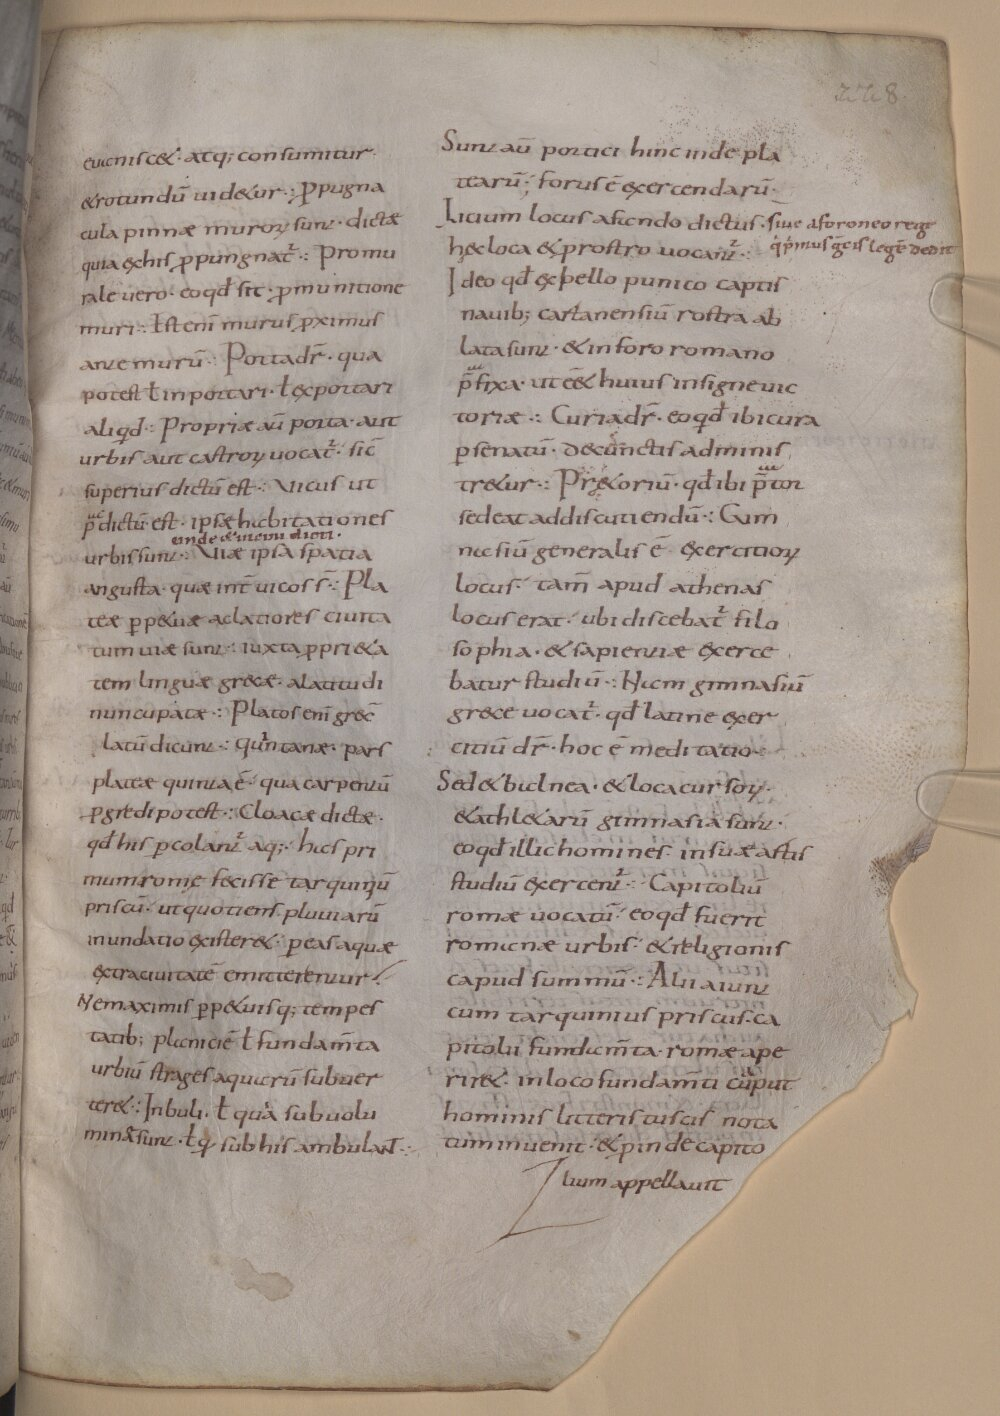 228
euanisc& · atq; consumitur
& rotundū uid&ur ·: ꝓpugna
cula pinnæ muroꝝ sunt · dictæ
quia exhis ꝓpungnat̄ ·: Promu
rale uero · eoqđ sit · ꝓmunitione
muri ·: Est enī murus ꝓximus
ante murū ·: Porta dr̄ · qua
potest ł inportari · ł exportari
aliqđ ·: Propriæ aū porta · aut
urbis aut castroꝝ uocat̄ · sic̄
superius dictū est ·: Vicus ut
p̄ dictū · est · ipsæ habitationes
unde & uicinii dicti ·
urbis sunt ·: Viæ ipsa spatia
angusta · quæ int̄ uicos s̄ ·: Pla
teæ ꝑp&uæ ac latiores ciuita
tum uiæ sunt ·: iuxta ꝓpri&a
tem linguæ grecæ · a latitudi
nuncupatæ ·: Platos enī grec̄
latū dicunt ·: quintanæ · pars
plateæ quinta ē · qua carpentū
ꝓgredi potest ·: Cloacæ dictæ ·
qđ his ꝑcolant̄ aq; · has pri
mum romę fecisse tarquiniū
priscū · ut quotiens pluuiarū
inundatio exister& · ꝑ eas aquæ
extra ciuitatē emitterentur
Ne maximis ꝑp&uisq; tempes
tatib; planiciē ł fundam̄ta
urbiū strages aquarū subuer
ter& ·: Inbuli · ł quia sub uolu
mina sunt · ł q̄ sub his ambulant ·:
Sunt aū portici hinc inde pla
tearū ; forus ē exercendarū ·
Litium locus a fando dictus · siue a foroneo rege
q̇ p̄mus g̃cis legē dedit
hęc loca & prostro uocant̄ ·:
Ideo qđ ex bello punico captis
nauib; cartanensiū rostra ab
lata sunt · & in foro romano
p̄fixa · ut e&͂ huius insigne uic
toriæ ·: Curia dr̄ · eoqđ ibi cura
ꝑ senatū · de cunctis adminis
tr&ur ·: Pr&oriū · qđ ibi p̄tor
sedeat ad discutiendū ·: Gim
nasiū generalis ē exercitioꝝ
locus · tam̄ apud athenas
locus erat · ubi discebat̄ filo
sophia · & sapientiæ exerce
batur studiū ·: Nam gimnasiū
grece uocat̄ · qđ latine exer
citiū dr̄ · hoc ē meditatio ·
Sed & balnea · & loca cursoꝝ ·
& athl&arū gimnasia sunt ·
eoqđ illic homines · in suæ artis
studiū exercent̄ ·: Capitoliū
romæ uocatū · eoqđ fuerit
romanæ urbis · & religionis
capud summū ·: Alii aiunt
cum tarquinius priscus · ca
pitolii fundam̄ta · romæ ape
rir& · in loco fundam̄ti caput
hominis litteris tuscis nota
tum inuenit · & ꝓinde capito
lium appellauit